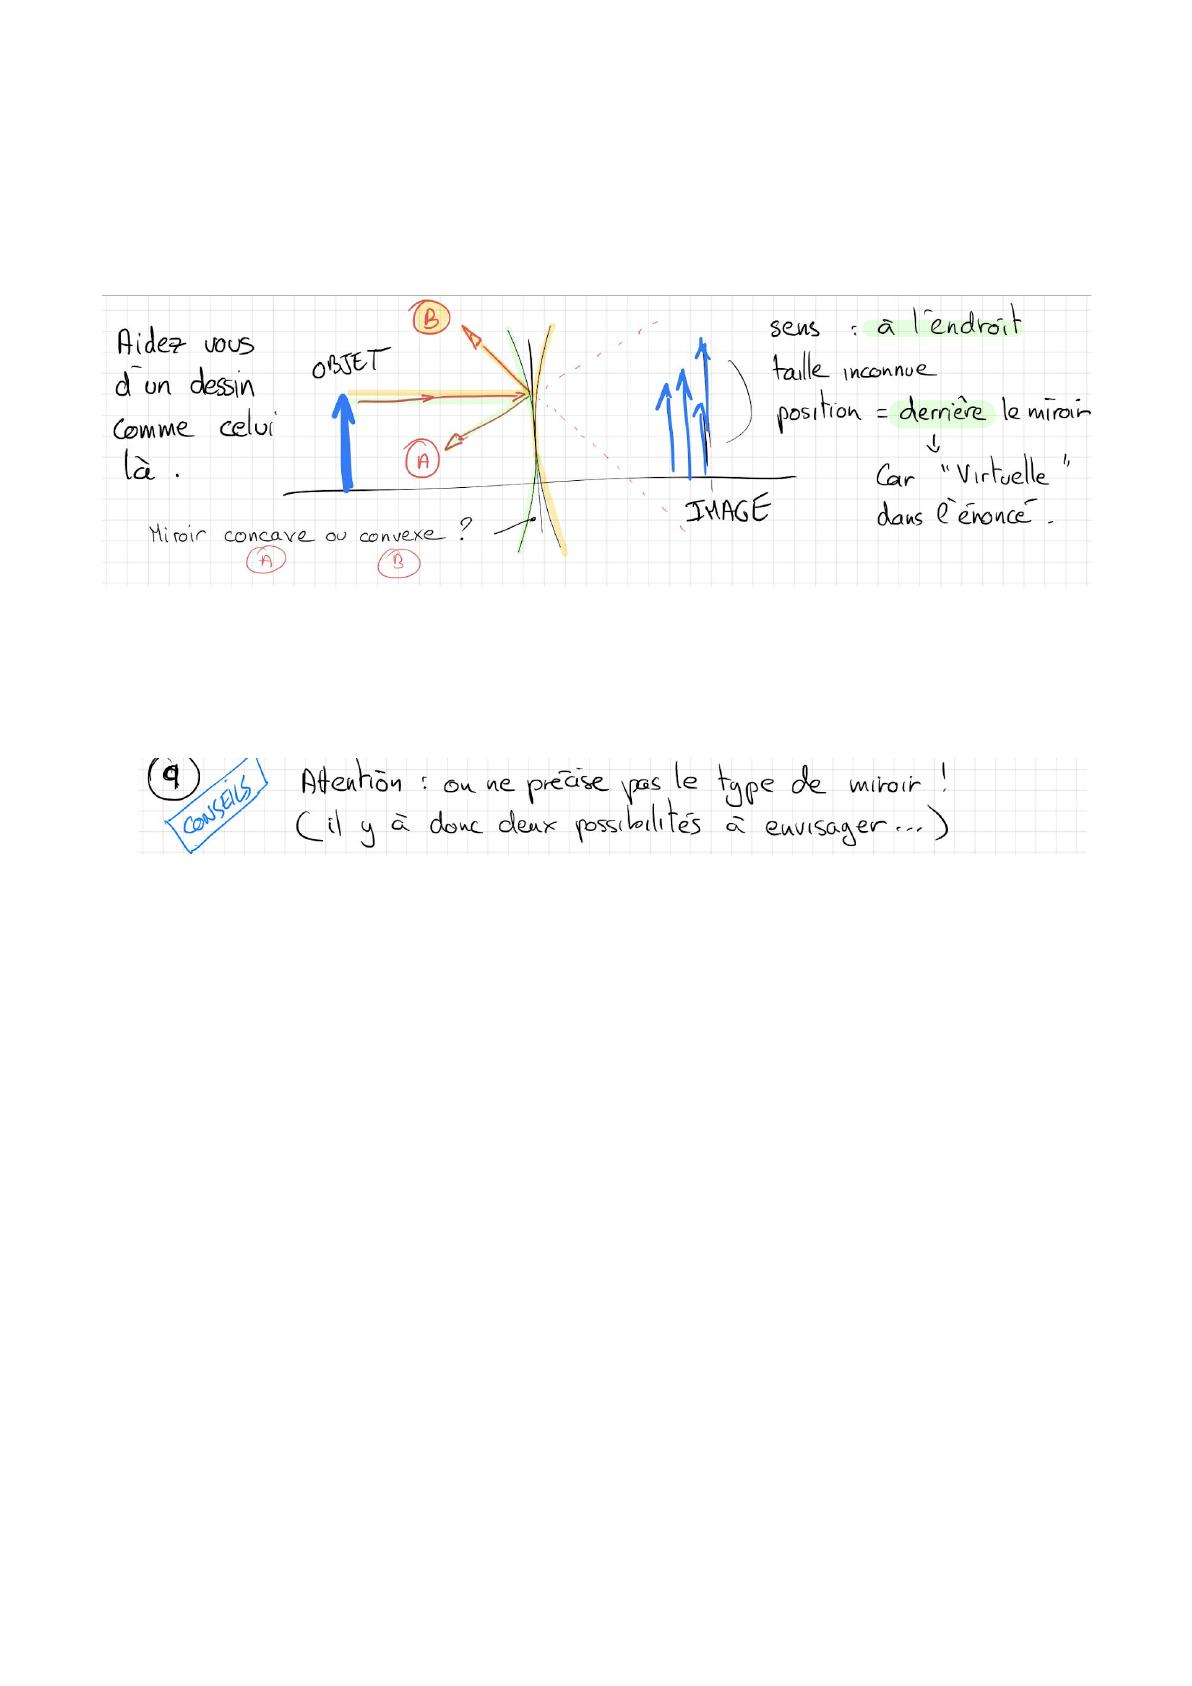 Aidez vous
d'un dessin
comme celui
là .
OBJET
B
A
Miroir concave ou convexe ?
A
B
IMAGE
sens : à l'endroit
taille inconnue
position = derrière le miroir
↓
Car "Virtuelle"
dans l'énoncé .
9
CONSEILS
Attention : on ne précise pas le type de miroir !
(il y à donc deux possibilités à envisager ... )